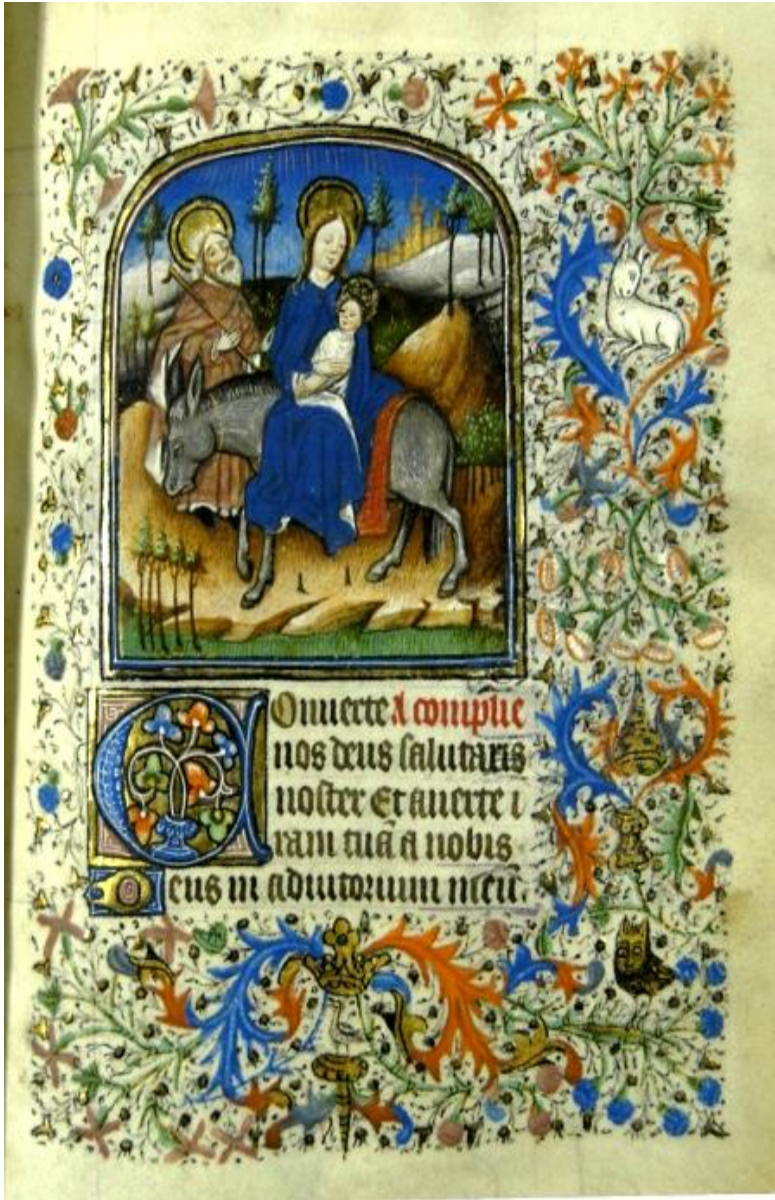 Conuerte A complie
nos deus salutaris
noster Et auerte i
ram tuā a nobis
Deus in adiutorium meū.